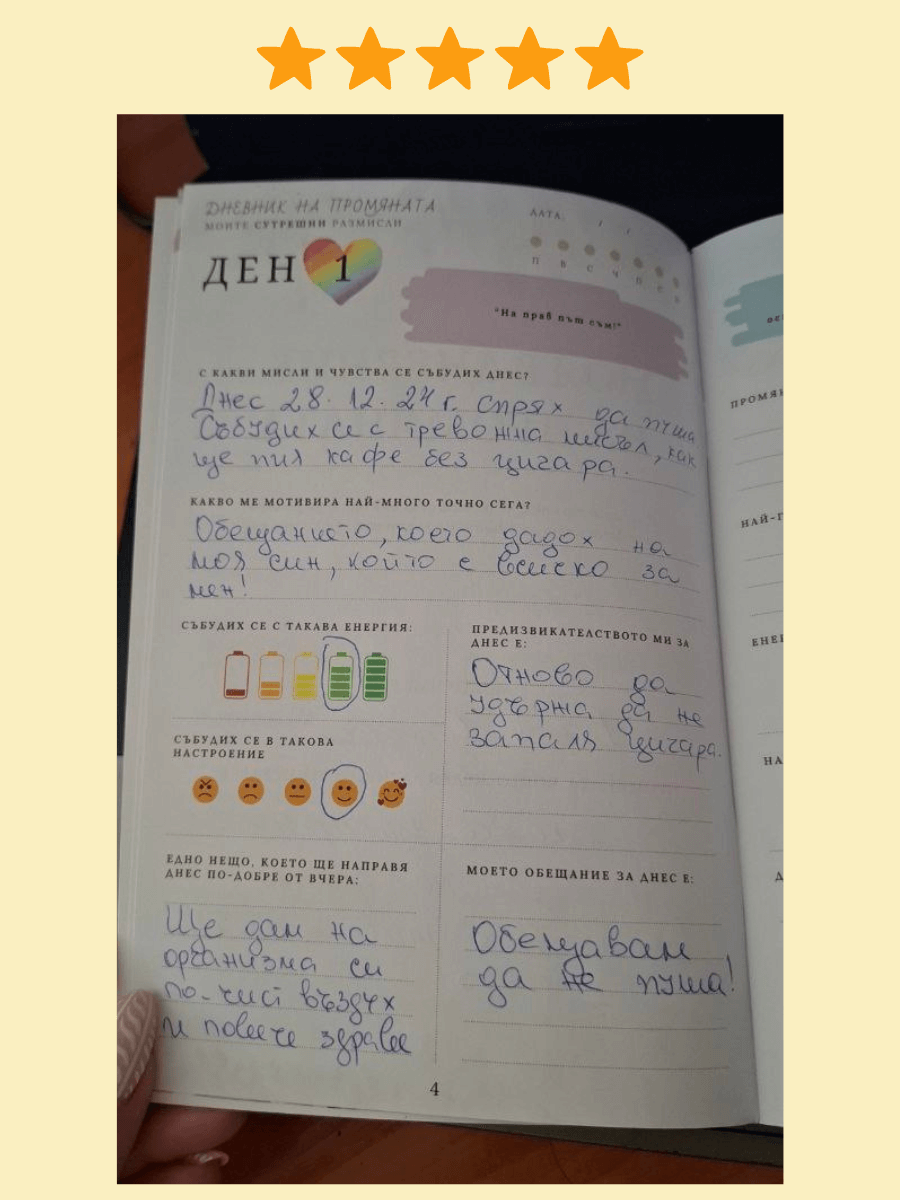 ДНЕВНИК НА ПРОМЯНАТА
МОИТЕ СУТРЕШНИ РАЗМИСЛИ
ДАТА: / /
П В С Ч П С
ДЕН 1
"На прав път съм!"
С КАКВИ МИСЛИ И ЧУВСТВА СЕ СЪБУДИХ ДНЕС?
Днес 28. 12. 24 г. спрях да пуша
Събудих се с тревожна мисъл, как
ще пия кафе без цигара.
КАКВО МЕ МОТИВИРА НАЙ-МНОГО ТОЧНО СЕГА?
Обещанието, което дадох на
моя син, който е всичко за
мен!
СЪБУДИХ СЕ С ТАКАВА ЕНЕРГИЯ:
ПРЕДИЗВИКАТЕЛСТВОТО МИ ЗА
ДНЕС Е:
Отново да
удържа да не
запаля цигара.
СЪБУДИХ СЕ В ТАКОВА
НАСТРОЕНИЕ
ЕДНО НЕЩО, КОЕТО ЩЕ НАПРАВЯ
ДНЕС ПО-ДОБРЕ ОТ ВЧЕРА:
Ще дам на
организма си
по-чист въздух
и повече здраве
МОЕТО ОБЕЩАНИЕ ЗА ДНЕС Е:
Обещавам
да не пуша!
4